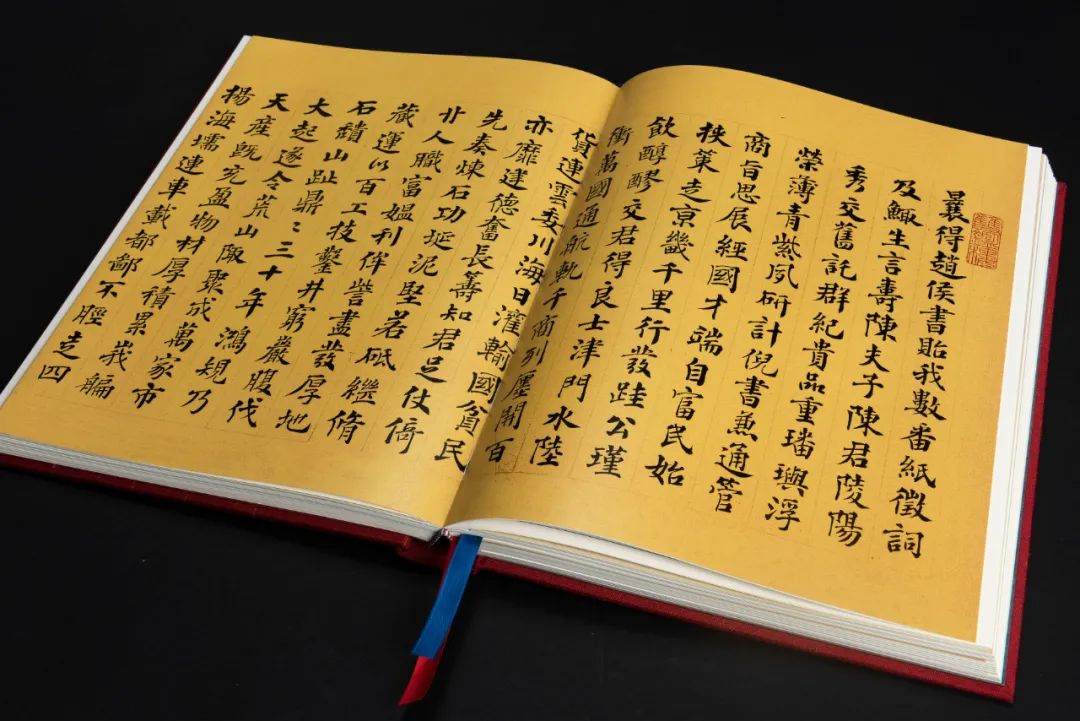 曩得趙侯書貽我數番紙徵詞
及鯫生言壽陳夫子陳君陵陽
秀交舊託群紀貴品重璠璵浮
榮薄青紫夙研計倪書兼通管
商旨思展經國才端自富民始
挾策走京畿千里行發跬公瑾
飲醇醪交若得良士津門水陸
衝萬國通航軌千商列廛開百
貨連雲委川海日灌輸國貧民
亦靡逹德奮長籌知君足仗倚
先秦煉石功埏泥堅若砥繼脩
卝人職富媼利侔訾畫發厚地
藏運以百工技鑿井窮巖腹伐
石績山趾鼎〻三十年鴻規乃
大起遂令荒山陬聚成萬家市
天產既充盈物材厚積累峩艑
揚海壖連車載都鄙不脛走四